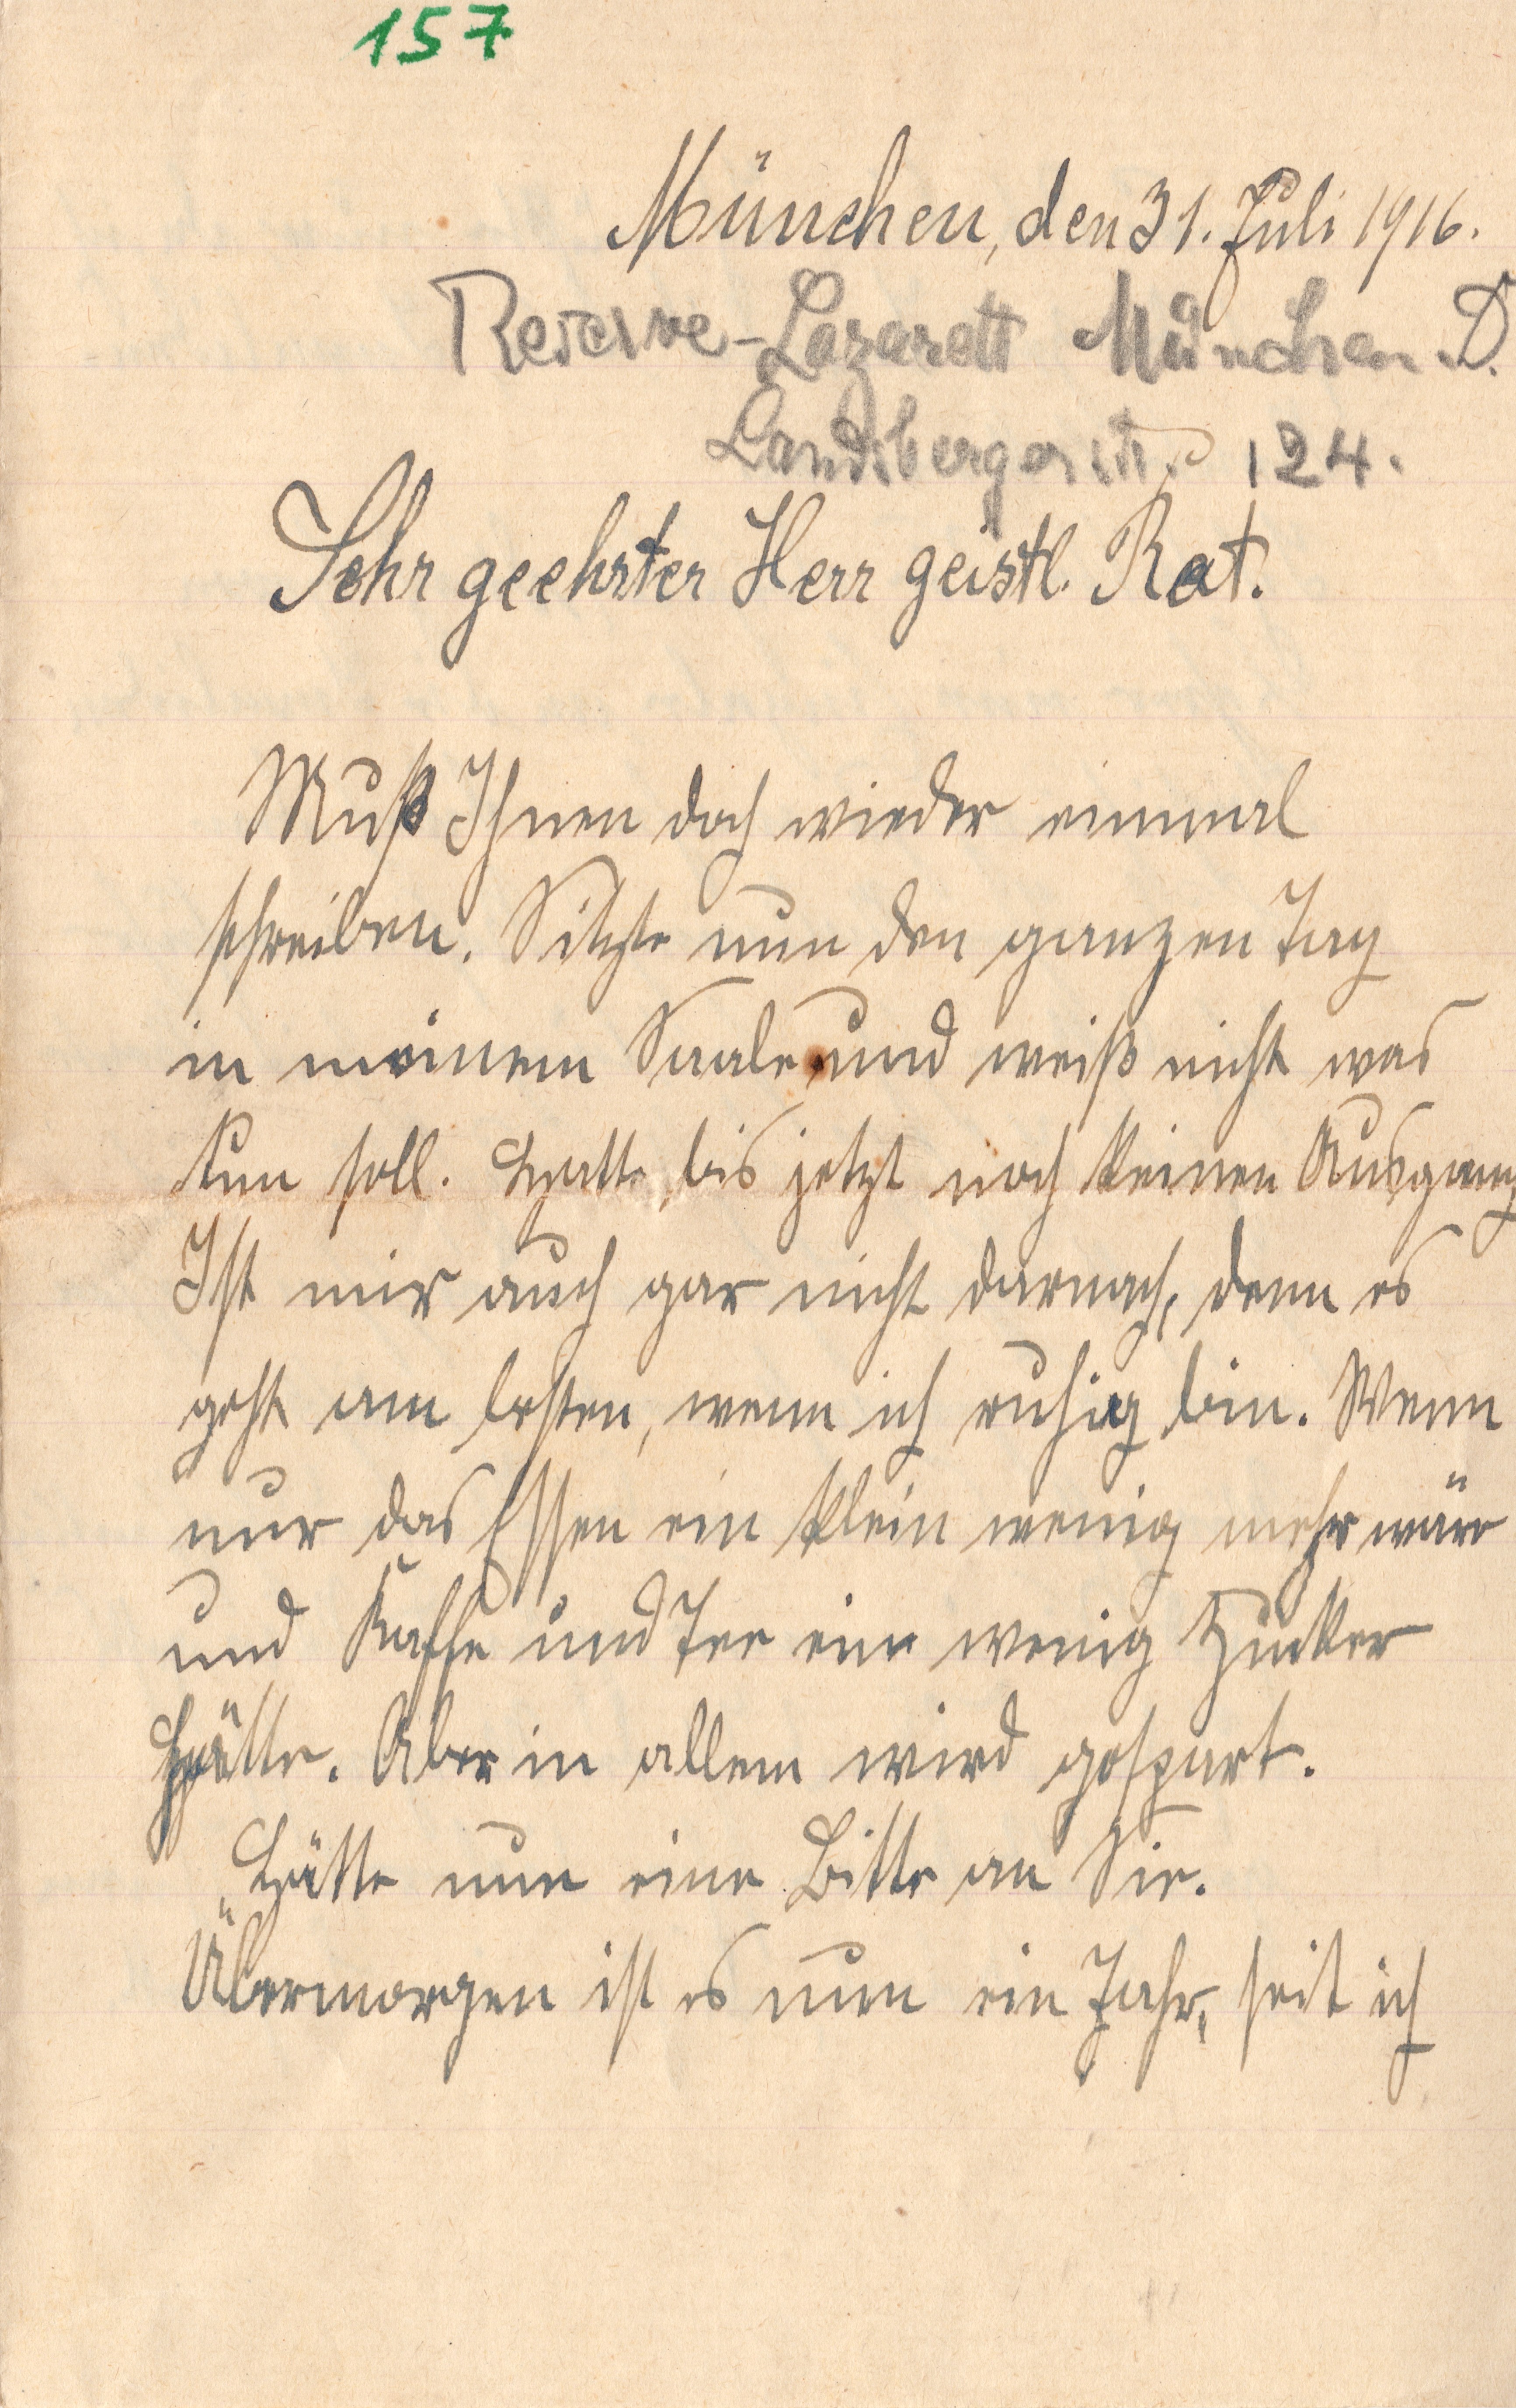 157
München, den 31. Juli 1916.
Reserve-Lazarett München D.
Landsbergerstr. 124.
Sehr geehrter Herr geistl. Rat.
Muß Ihnen doch wieder einmal
schreiben. Sitzte nun den ganzen Tag
in meinem Saale und weiß nicht was
tun soll. Hatte bis jetzt noch keinen Ausgang
Ist mir auch gar nicht darnach, denn es
geht am besten, wenn ich ruhig bin. Wenn
nur das Essen ein klein wenig mehr wäre
und Kaffe und Tee ein wenig Zucker
hätte. Aber in allem wird gespart.
Hätte nun eine Bitte an Sie.
Übermorgen ist es nun ein Jahr, seit ich